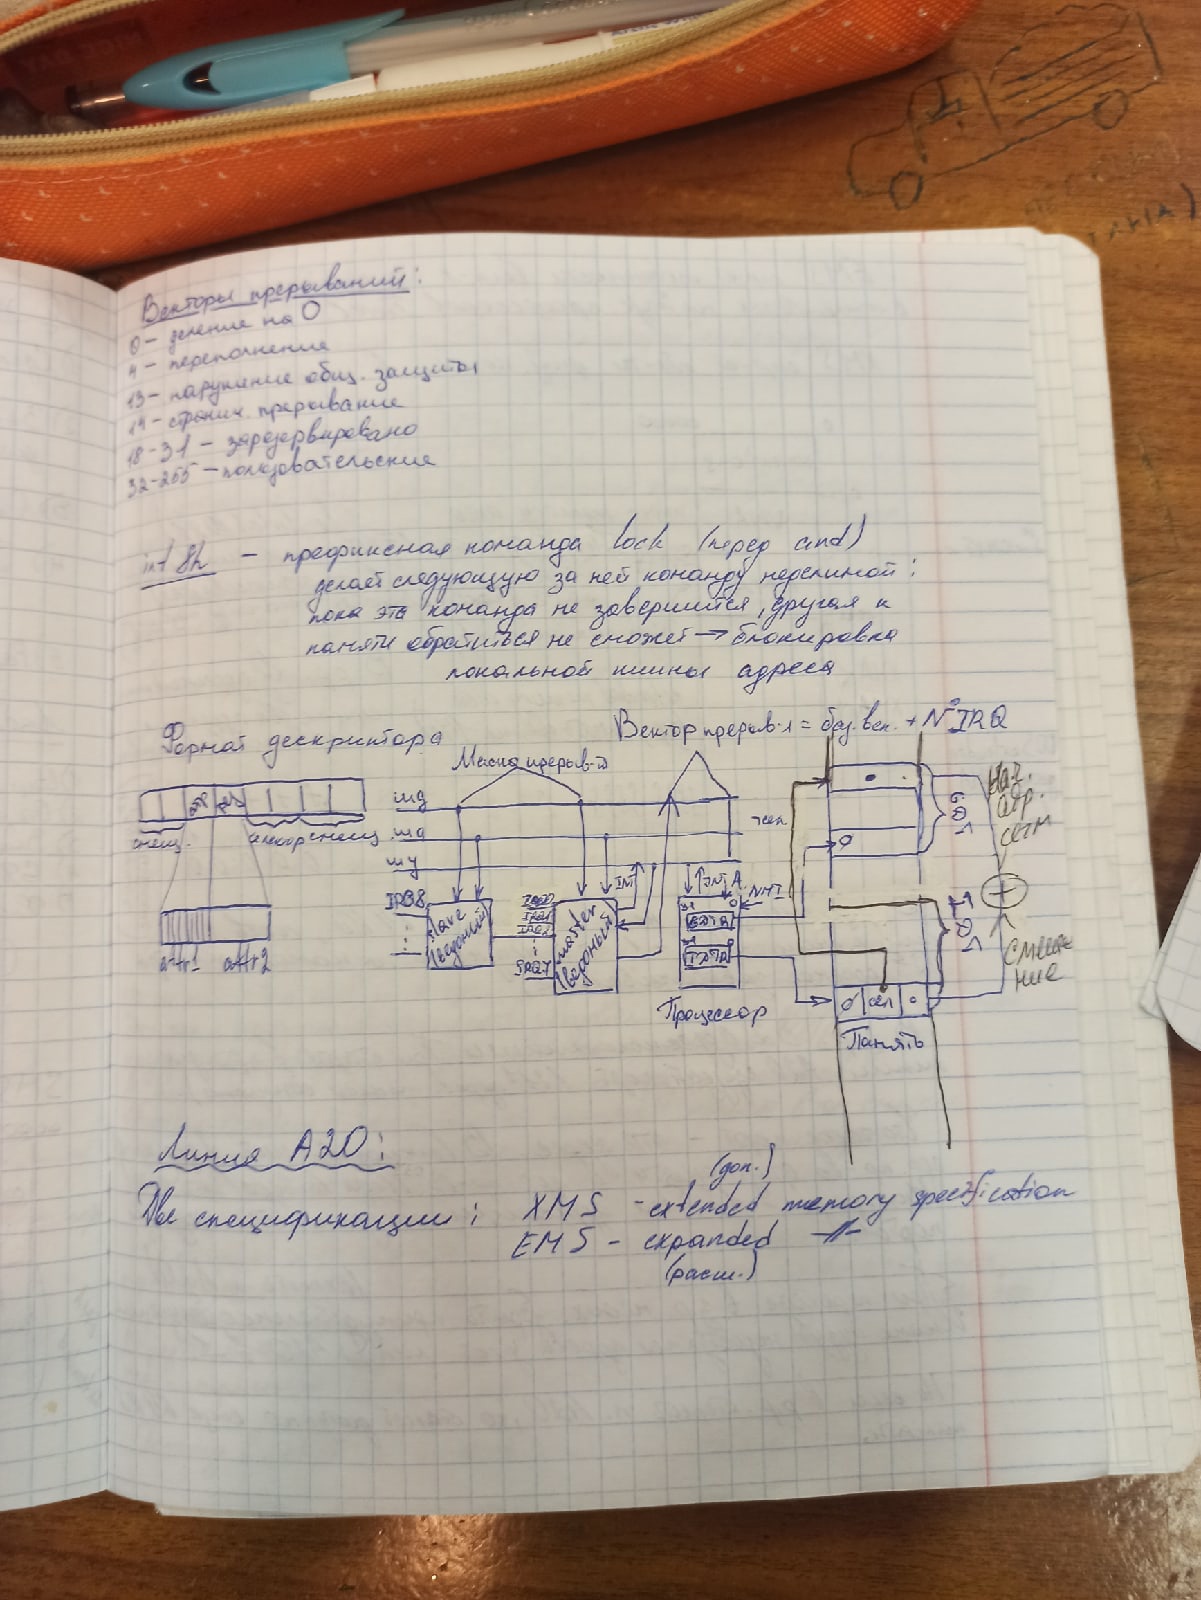 Векторы прерываний:
0 – деление на 0
4 – переполнение
13 – нарушение общ. защиты
14 – страничн. прерывание
18-31 – зарезервировано
32-255 – пользовательские
int 8h – префиксная команда lock (перед cmd)
делает следующую за ней команду неделимой:
пока эта команда не завершится, другая к
памяти обратиться не сможет → блокировка
локальной шины адреса
Формат дескриптора
Маска прерыв-й
Вектор прерыв-я = баз. век. + № IRQ
смещ.
селектор
смещ
attr1
attr2
шд
ша
шу
IRQ8
slave
(ведомый)
IRQ0
IRQ1
IRQ2
IRQ7
master
(ведущий)
INT
INTA
NMI
31
0
GDTR
IDTR
Процессор
сел
GDT
Нач.
адр.
сегм
+
IDT
смеще-
ние
сел
Память
Линия A20:
Две спецификации:
(доп.)
XMS – extended memory specification
EMS – expanded –//–
(расш.)